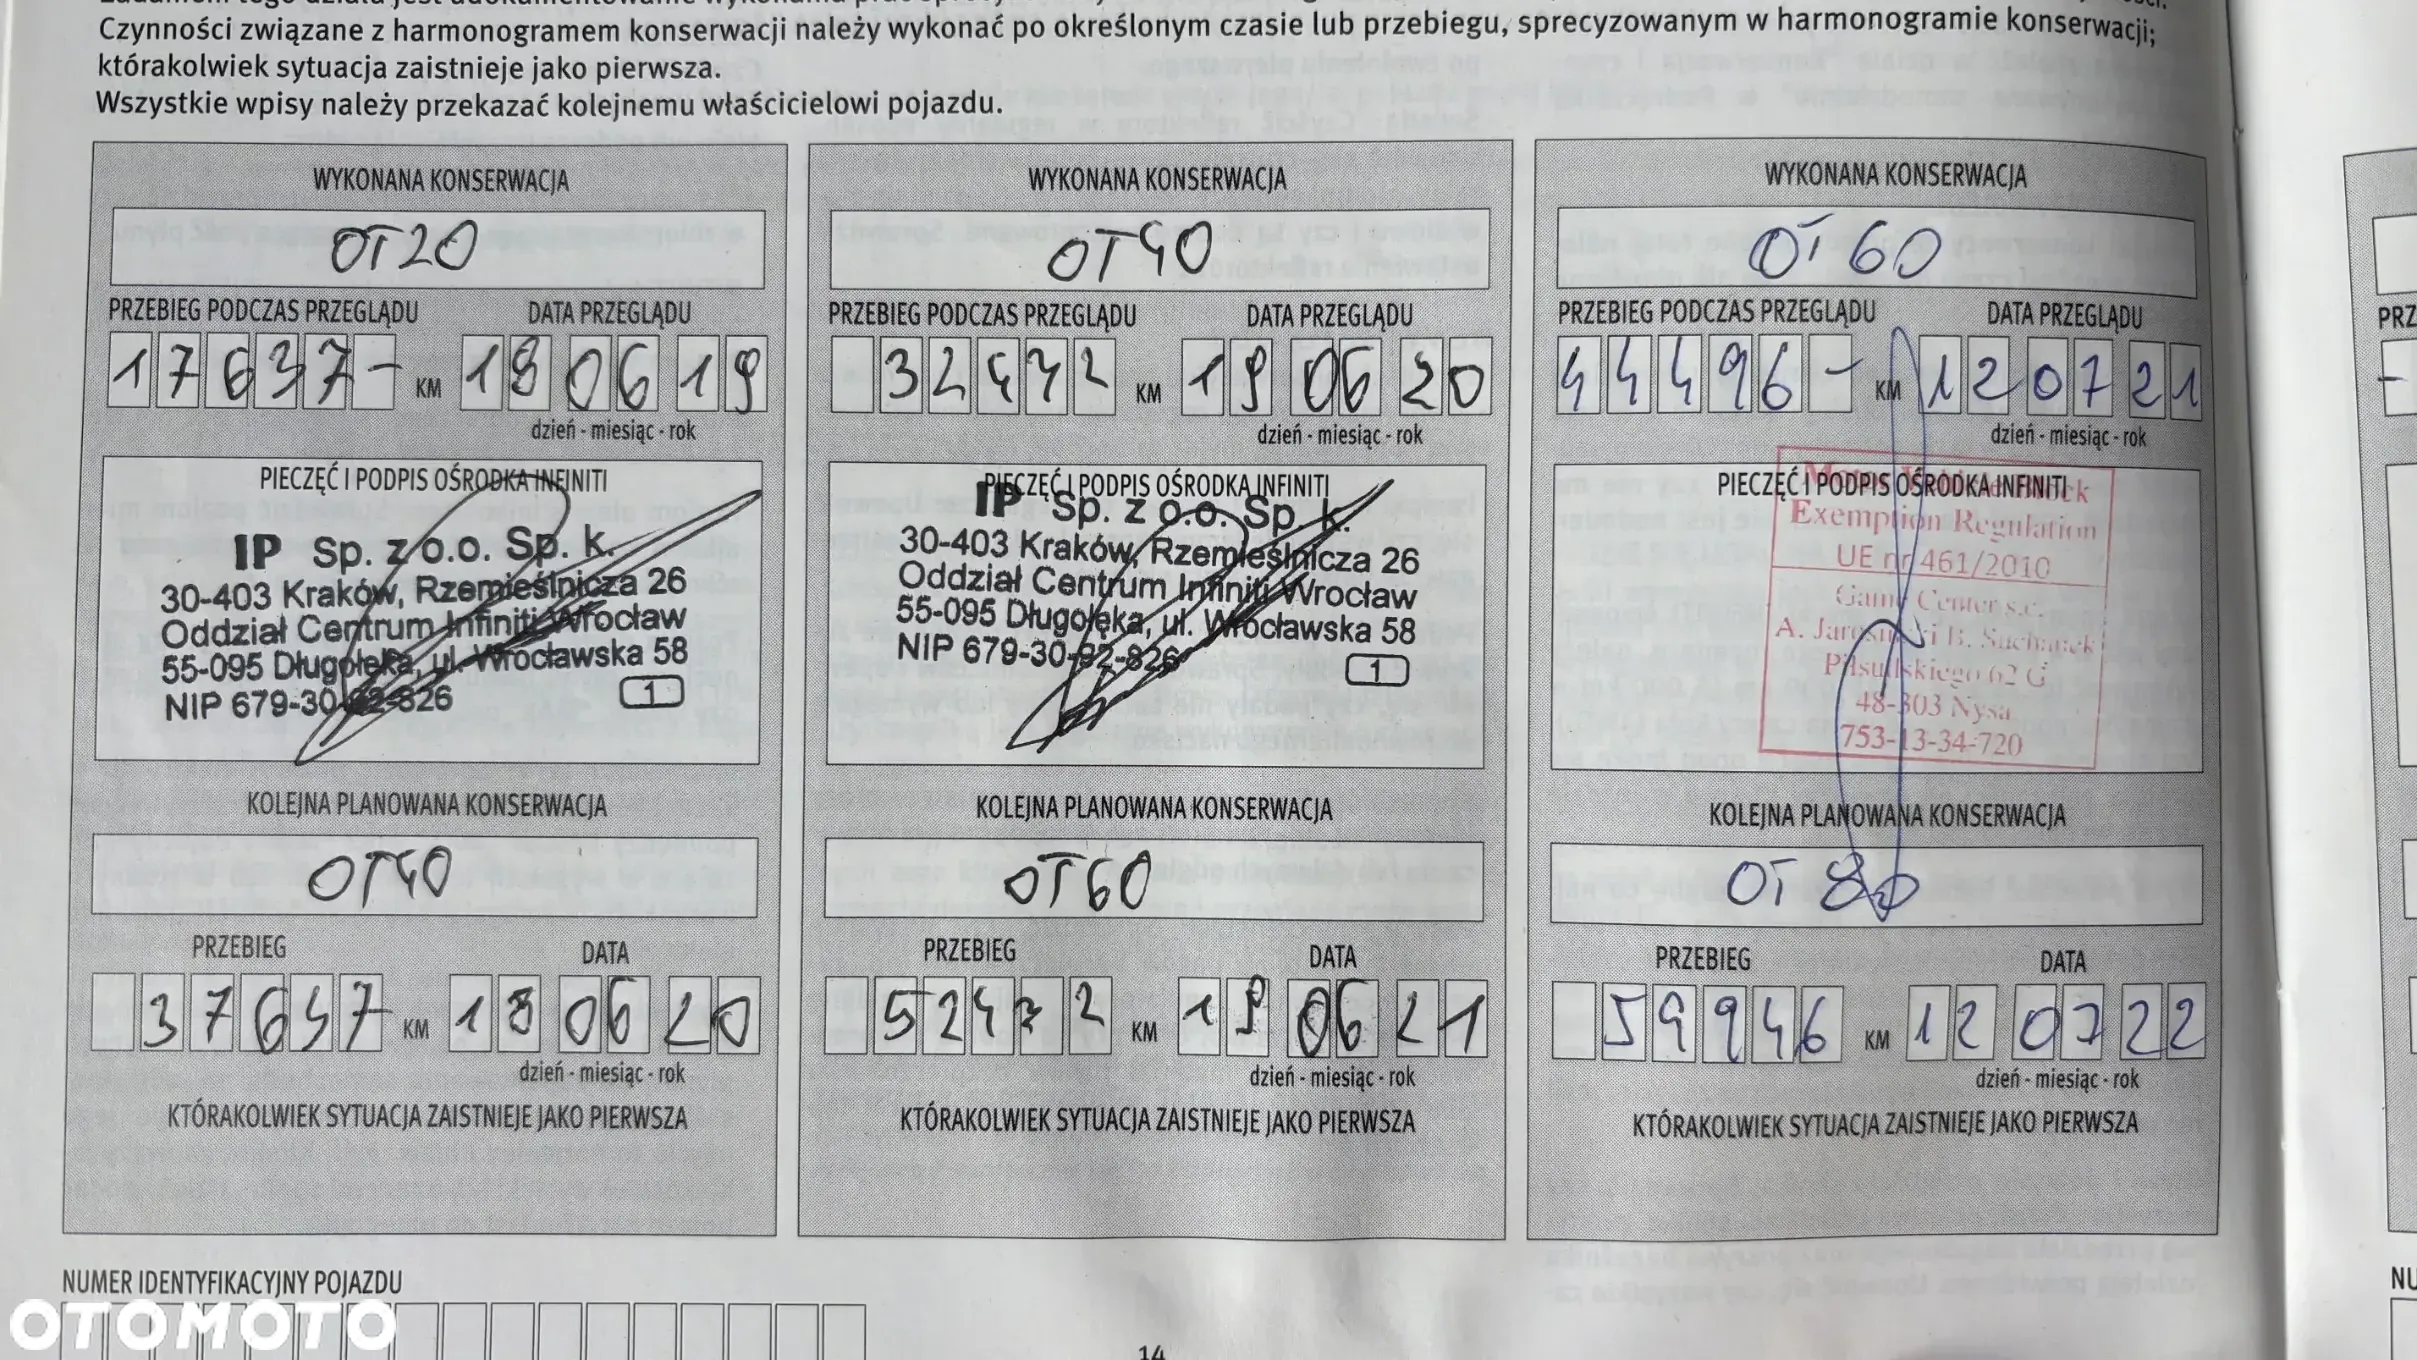 Czynności związane z harmonogramem konserwacji należy wykonać po określonym czasie lub przebiegu, sprecyzowanym w harmonogramie konserwacji;
którakolwiek sytuacja zaistnieje jako pierwsza.
Wszystkie wpisy należy przekazać kolejnemu właścicielowi pojazdu.
WYKONANA KONSERWACJA
OT20
PRZEBIEG PODCZAS PRZEGLĄDU DATA PRZEGLĄDU
17637- KM 180619
dzień - miesiąc - rok
PIECZĘĆ I PODPIS OŚRODKA INFINITI
IP Sp. z o.o. Sp. k.
30-403 Kraków, Rzemieślnicza 26
Oddział Centrum Infiniti Wrocław
55-095 Długołęka, ul. Wrocławska 58
NIP 679-30-92-826 1
KOLEJNA PLANOWANA KONSERWACJA
OT40
PRZEBIEG DATA
37637 KM 180620
dzień - miesiąc - rok
KTÓRAKOLWIEK SYTUACJA ZAISTNIEJE JAKO PIERWSZA
WYKONANA KONSERWACJA
OT40
PRZEBIEG PODCZAS PRZEGLĄDU DATA PRZEGLĄDU
32472 KM 190620
dzień - miesiąc - rok
PIECZĘĆ I PODPIS OŚRODKA INFINITI
IP Sp. z o.o. Sp. k.
30-403 Kraków, Rzemieślnicza 26
Oddział Centrum Infiniti Wrocław
55-095 Długołęka, ul. Wrocławska 58
NIP 679-30-92-826 1
KOLEJNA PLANOWANA KONSERWACJA
OT60
PRZEBIEG DATA
52472 KM 190621
dzień - miesiąc - rok
KTÓRAKOLWIEK SYTUACJA ZAISTNIEJE JAKO PIERWSZA
WYKONANA KONSERWACJA
OT 60
PRZEBIEG PODCZAS PRZEGLĄDU DATA PRZEGLĄDU
44496- KM 120721
dzień - miesiąc - rok
PIECZĘĆ I PODPIS OŚRODKA INFINITI
Motor Vehicle Block
Exemption Regulation
UE nr 461/2010
Center s.c.
A. B. Suchanek
Piłsudskiego 62 G
48-303 Nysa
753-13-34-720
KOLEJNA PLANOWANA KONSERWACJA
OT 80
PRZEBIEG DATA
59946 KM 120722
dzień - miesiąc - rok
KTÓRAKOLWIEK SYTUACJA ZAISTNIEJE JAKO PIERWSZA
NUMER IDENTYFIKACYJNY POJAZDU
OTOMOTO
14
PRZ
NU